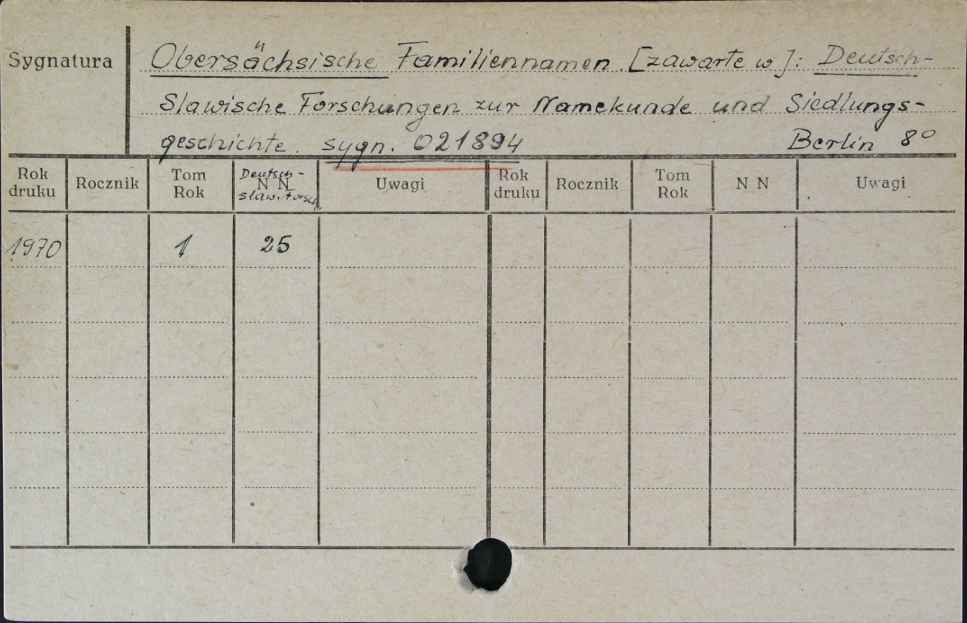 Sygnatura
Obersächsische Familiennamen [zawarte w]: Deutsch-
Slawische Forschungen zur Namekunde und Siedlungs-
geschichte. sygn. 021894 Berlin 8°
Rok druku Rocznik Tom Rok Deutsch-slaw. Forsch. N N Uwagi Rok druku Rocznik Tom Rok N N Uwagi
1970 1 25